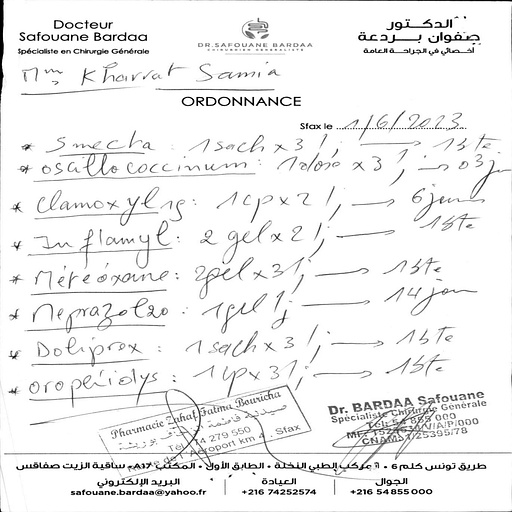 Docteur
Safouane Bardaa
Spécialiste en Chirurgie Générale
DR.SAFOUANE BARDAA
CHIRURGIEN GENERALISTE
الدكتور
صفوان بردعة
أخصائي في الجراحة العامة
Mme Kharrat Samia
ORDONNANCE
Sfax le 1/6/2023
* Smecta : 1 sach x 3 /j → 1 bte
* oscillococcinum : 1 dose x 3 /j → 03 j
* Clamoxyl 1g : 1 cp x 2 /j → 6 jours
* Inflamyl : 2 gel x 2 /j → 1 bte
* Météoxane : 2 gel x 3 /j → 1 bte
* Neprazol 20 : 1 gel /j → 14 jours
* Doliprox : 1 sach x 3 /j → 1 bte
* oropéridys : 1 cp x 3 /j → 1 bte
Pharmacie Zahaf Fatma Bouricha
Tél: 74 279 550
de l'Aéroport km 4 Sfax
Dr. BARDAA Safouane
Spécialiste Chirurgie Générale
Tél: 54 855 000
CNAM: 1/25395/78
طريق تونس كلم 6 • مركب الطبي النخلة • الطابق الأول • المكتب A17 • ساقية الزيت صفاقس
البريد الإلكتروني
safouane.bardaa@yahoo.fr
العيادة
+216 74252574
الجوال
+216 54 855 000